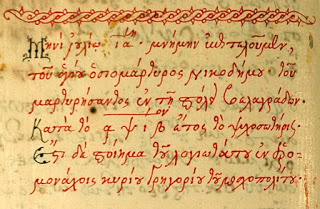 Μηνὶ ἰουλίῳ ια· μνήμην ἐπιτελοῦμεν,
τοῦ ἁγίου ὁσιομάρτυρος νικοδήμου τοῦ
μαρτυρήσαντος ἐν τῇ πόλει βελαγράδων·
Κατὰ τὸ α ψ ι β ἔτος τὸ
Ἔστι δὲ ποίημα τοῦ λογιωτάτου ἐν ἱερο
μονάχοις κυρίου γρηγορίου τοῦ μοσχοπολίτου·